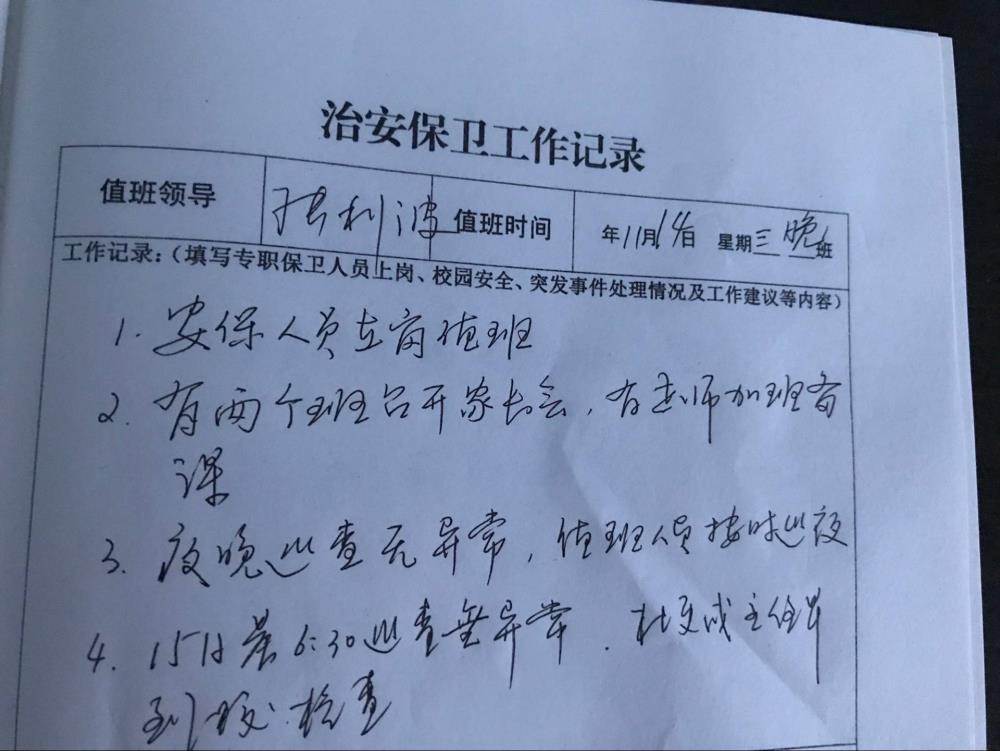 治安保卫工作记录
值班领导 张利波 值班时间 年11月14日 星期三晚班
工作记录：（填写专职保卫人员上岗、校园安全、突发事件处理情况及工作建议等内容）
1. 安保人员在岗值班
2. 有两个班召开家长会，有老师加班备
课
3. 夜晚巡查无异常，值班人员按时巡夜
4. 15日晨6:30巡查无异常. 主任早
到校检查